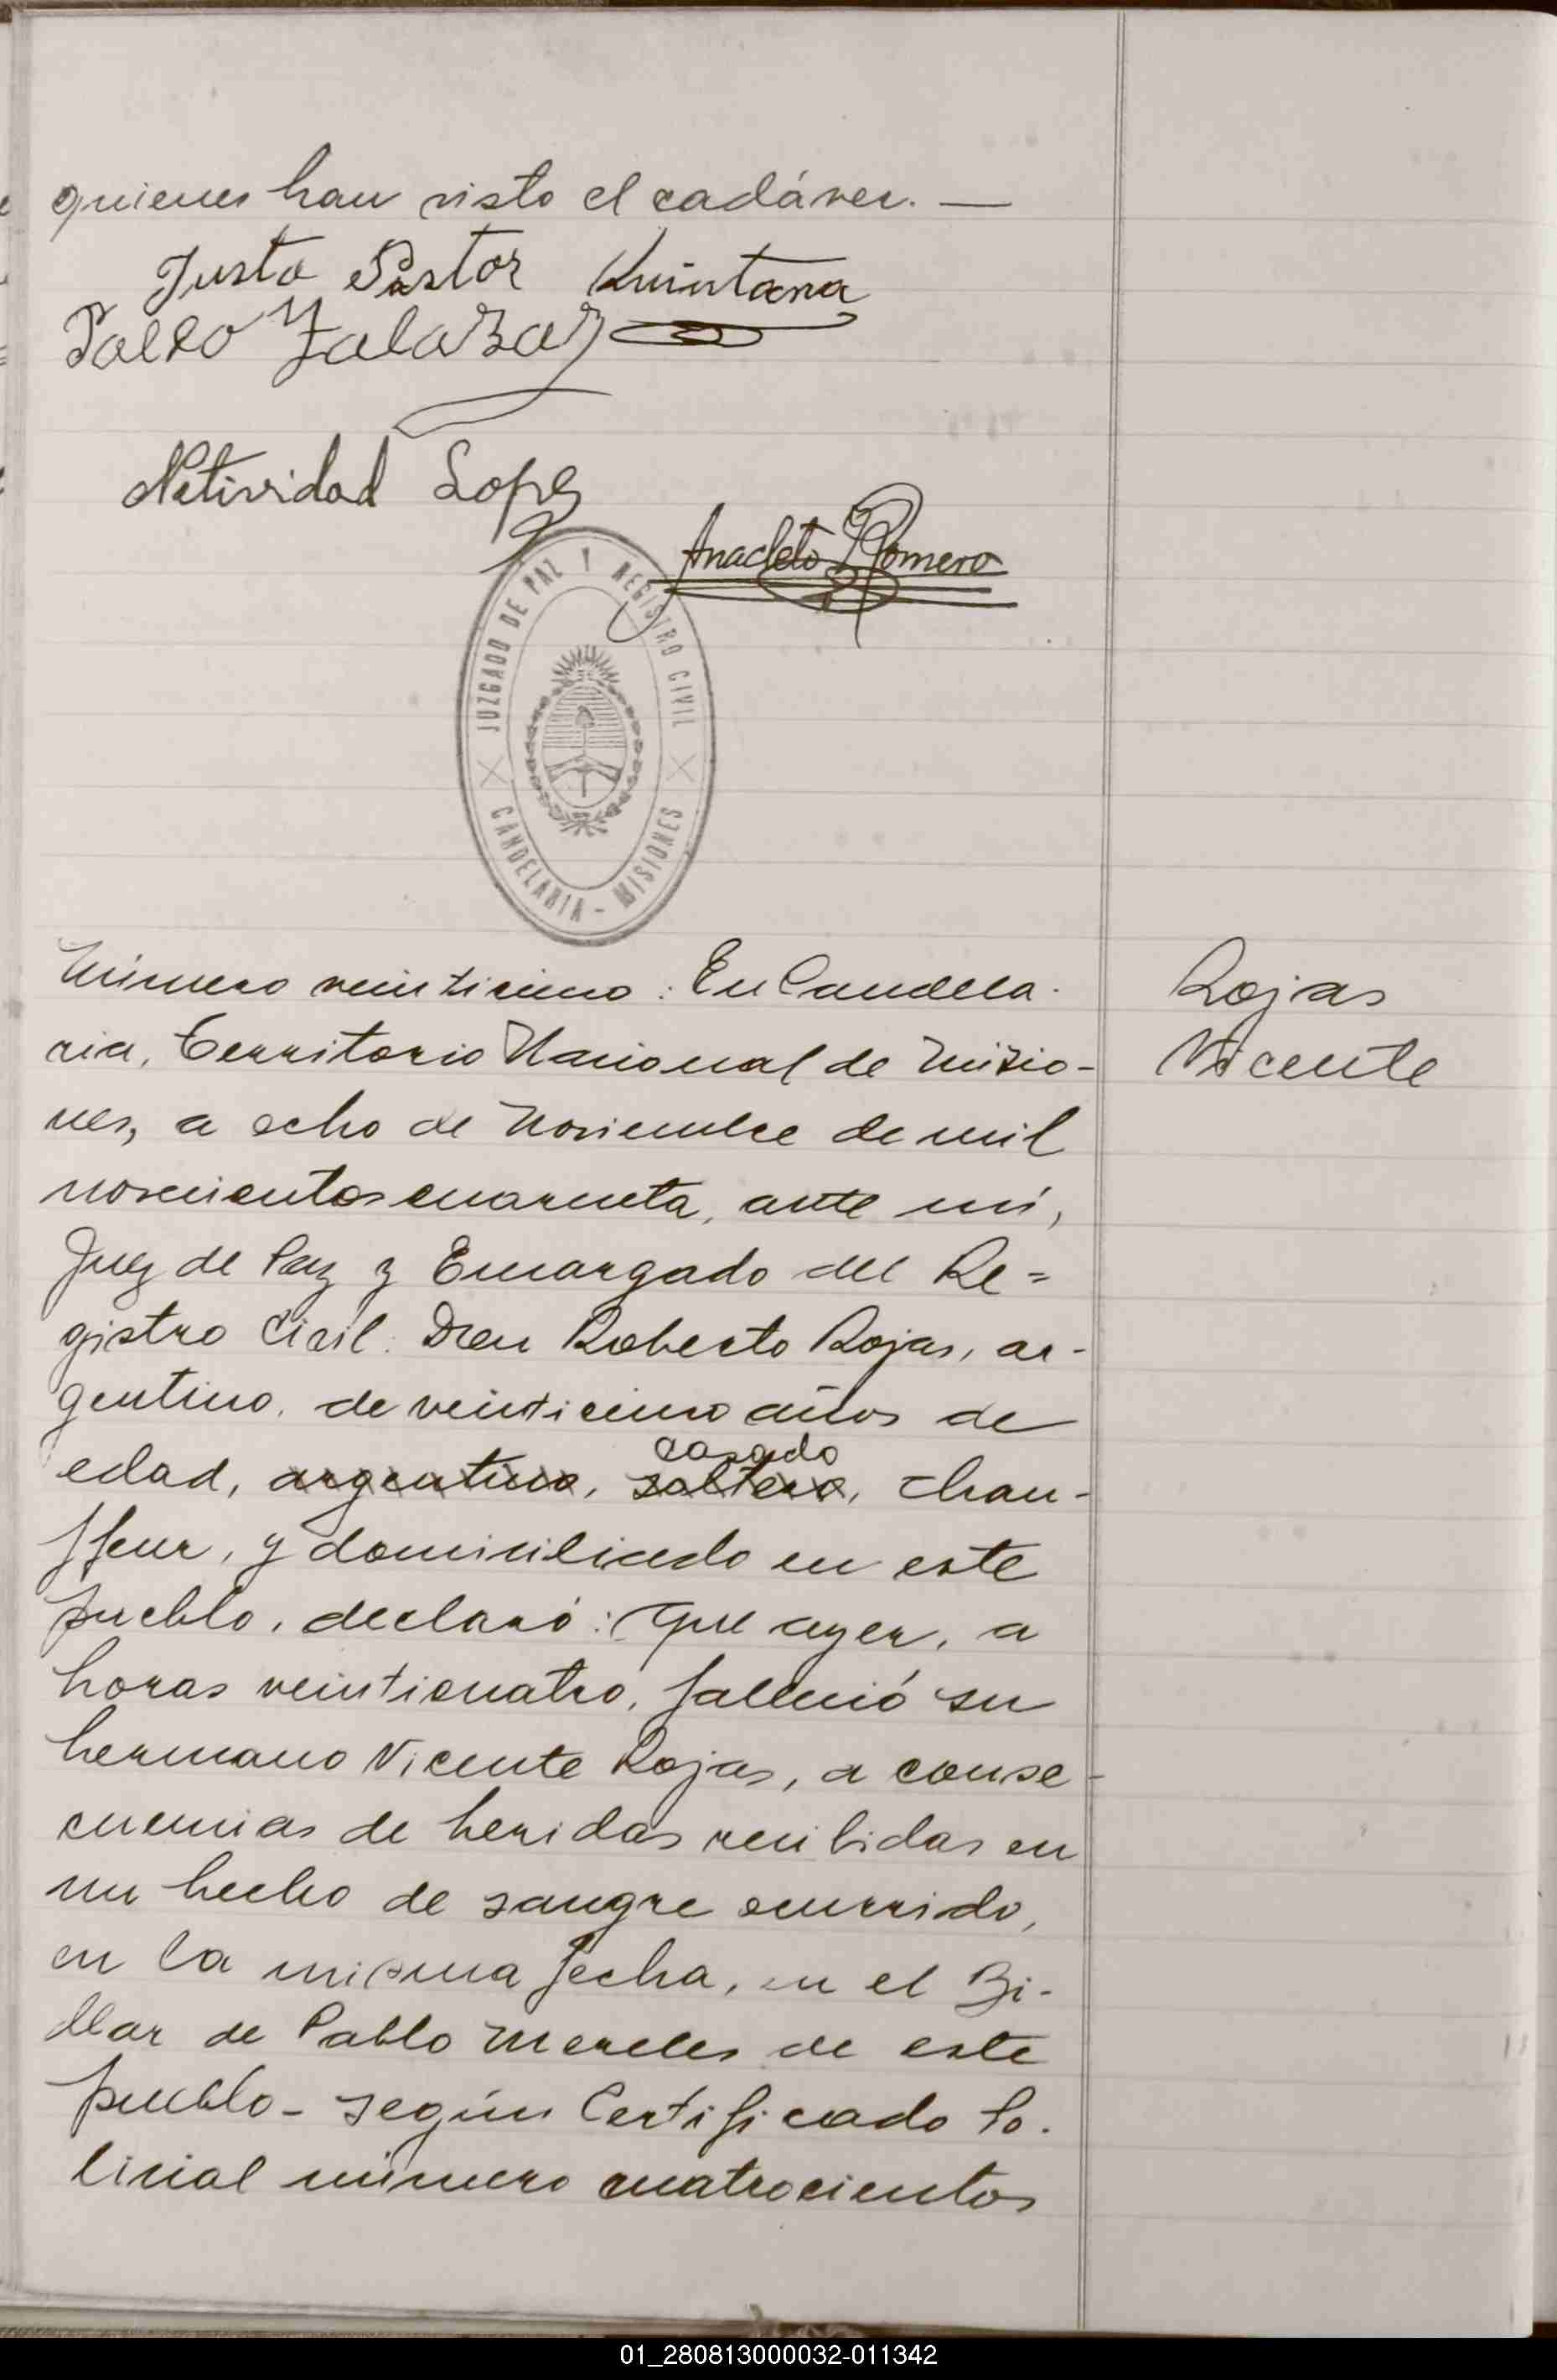 quienes han visto el cadáver. —
Justo Pastor Quintana
Pablo Zalazar
Natividad Lopez
Anacleto Romero
JUZGADO DE PAZ Y REGISTRO CIVIL
CANDELARIA - MISIONES
Número veinticinco: En Candela-
ria, Territorio Nacional de Misio-
nes, a ocho de Noviembre de mil
novecientos cuarenta, ante mí,
Juez de Paz y Encargado del Re=
gistro Civil. Don Roberto Rojas, ar-
gentino, de veinticinco años de
casado
edad, argentino, soltero, chau-
ffeur, y domiciliado en este
pueblo, declaró: Que ayer, a
horas veinticuatro, falleció su
hermano Vicente Rojas, a conse-
cuencias de heridas recibidas en
un hecho de sangre ocurrido,
en la misma fecha, en el Bi-
llar de Pablo Mereles de este
pueblo - según Certificado Po-
licial número cuatrocientos
Rojas
Vicente
01_280813000032-011342